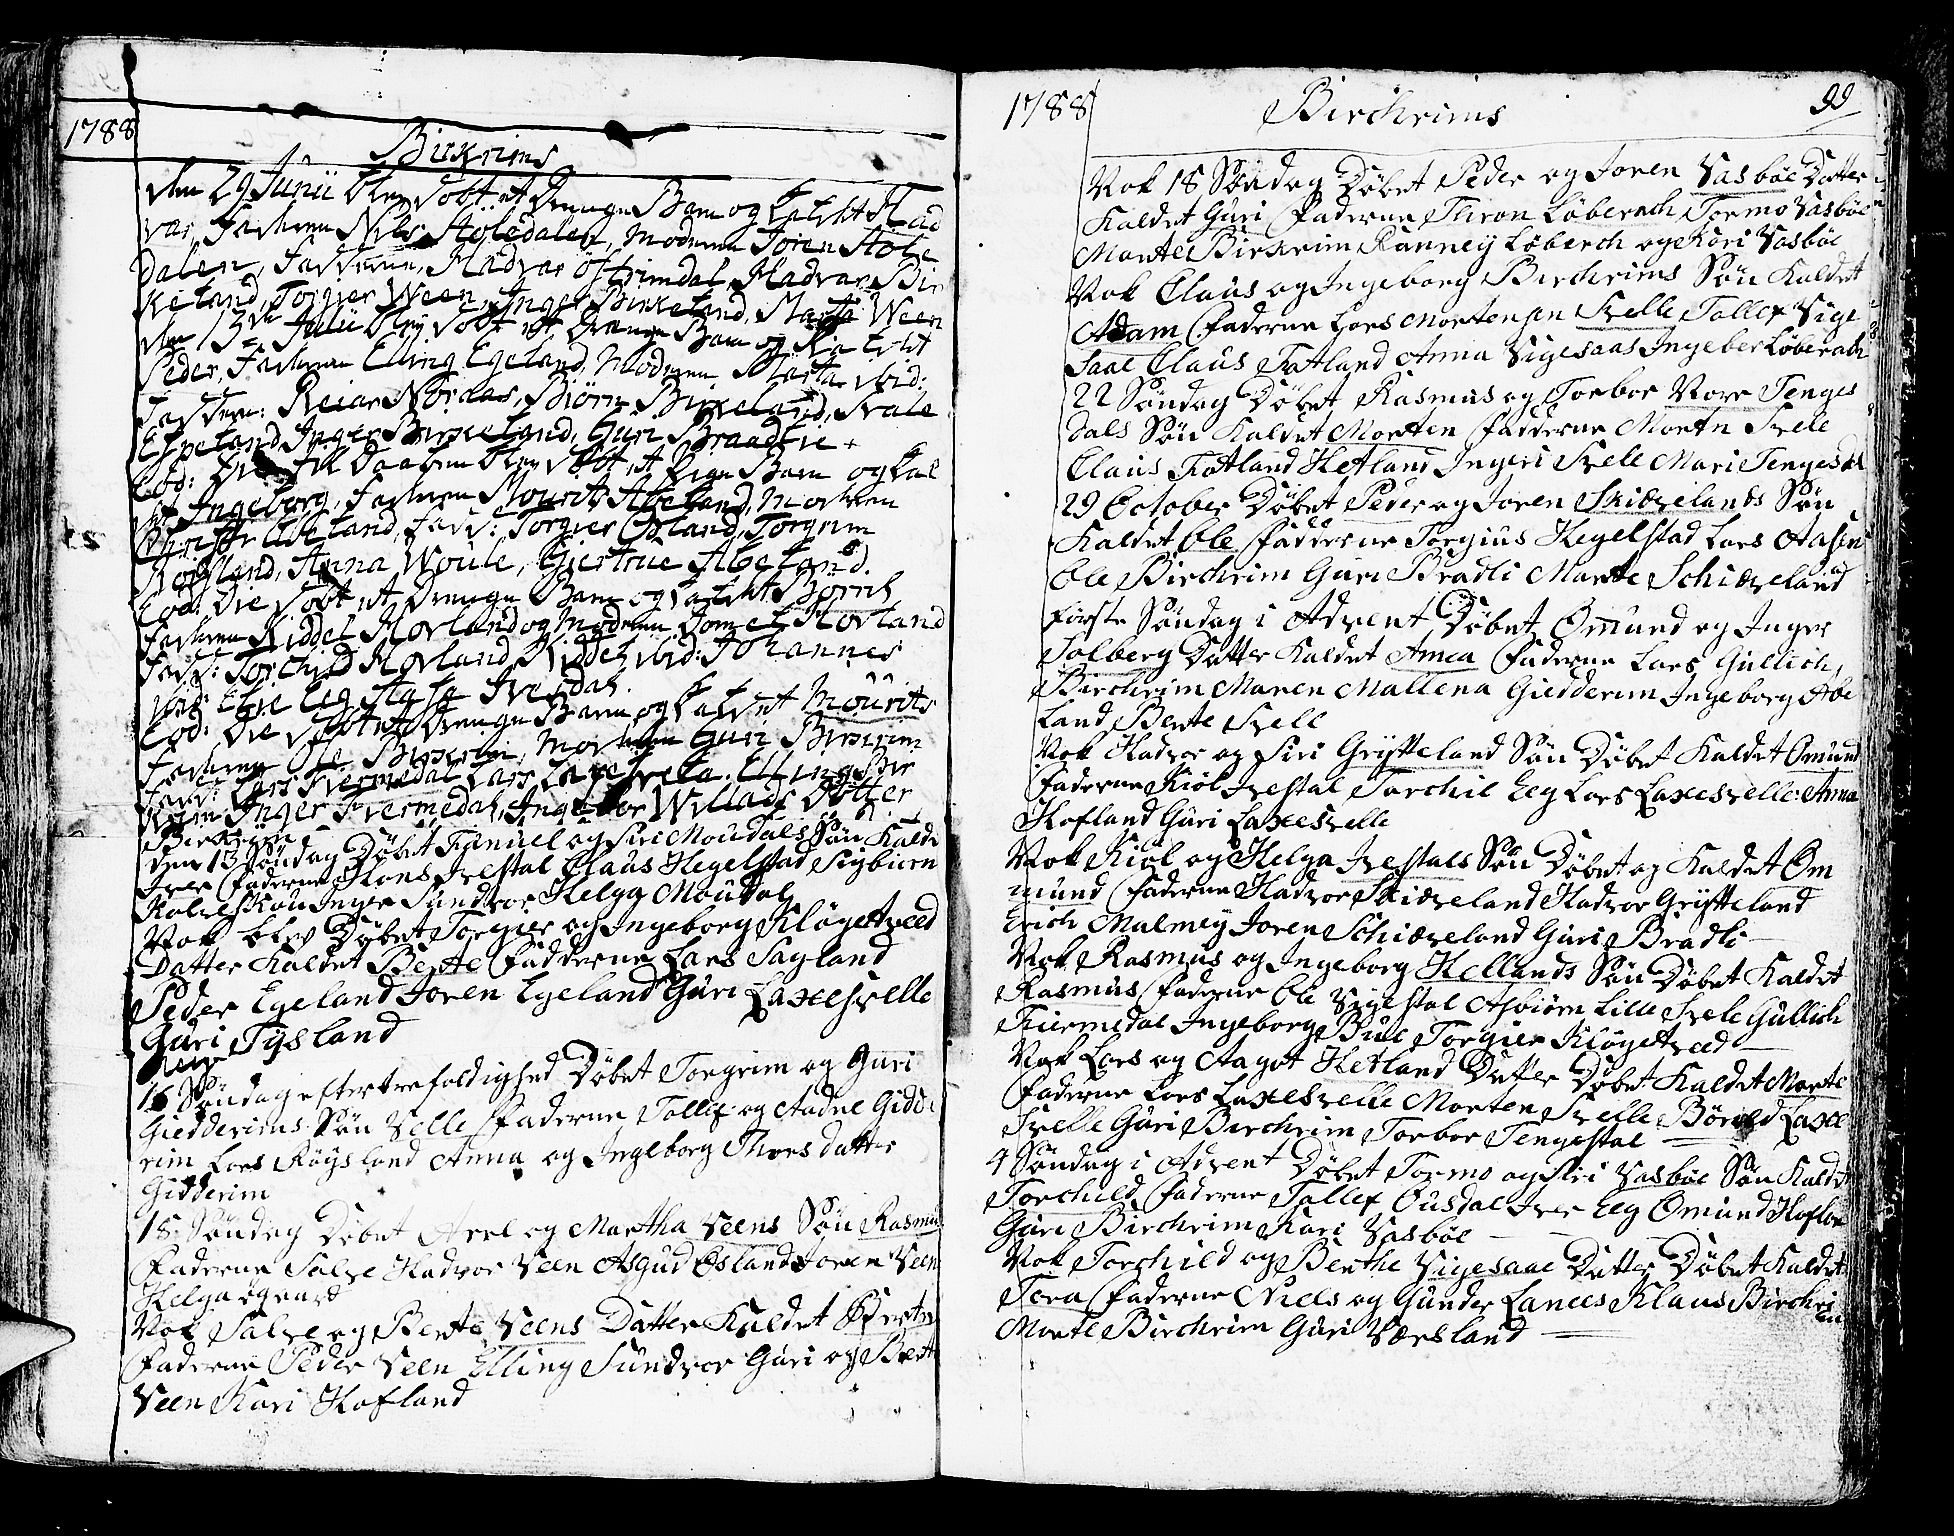 1788
Birkrims
den 29 Junii blev döbt et Drenge Barn og kaldt Had
var, Faderen Nils Stöledalen, Moderen Joren Stöle
dalen, Fadderne, Hadvar östrimdal, Hadvar Bir
keland, Torgier Ween, Inger Birkeland, Marta Ween
den 13de Julii blev döbt et Drenge Barn og kaldt
Peder, Faderen Elling Egeland, Moderen Marta ibid:
Fadderne: Reiar Nördas, Biörn Birkeland, Svale
Espeland Inger Birkeland, Guri Braadlie
Eod: Die döbt et Pige Barn og kal
det Ingeborg, Faderen Mourits Abeland, Moderen
Abeland, Fadd: Torgier Ösland, Torgrim
Röisland, Anna Woule, Giertrue Abeland.
Eod: Die döbt et Drenge Barn og kaldt Börrild
Faderen Kiddel Hovland og Moderen Hovland
Fadd: Torchild Hovland, Kiddel ibid: Johannes
ibid: Elie Eeg Ivesdal.
Eod: Die döbt et Drenge Barn og kaldet Mourits
Faderen Ole Birkrim, Moderen Guri Birkrim
Fadd: Lars Kiermedal Lars Laxesvela. Elling Bir
krim Inger Kiermedal, Ingebor Willads Dotter
Birkrim
den 13 Söndag Döbt Samuel og Siri Moudals Sön Kaldt
Iver Faderne Hans Ivestal Claus Hegelstad Sigbiorn
Inger Sundvor Helga Moudal
Nok blev Döbet Torgier og Ingeborg Klögetveed
Datter Kaldet Berte Fadderne Lars Sagland
Peder Egeland Joren Egeland Guri Laxesvelle
Guri Tysland
16 Söndag efter trefoldighed Döbet Torgrim og Guri
Giedderims Sön Velle Faderne Tollef og Aadne Gidde
rim Lars Röysland Anna og Ingeborg Thorsdatter
Gidderim
18 Söndag Döbet Axel og Martha Veens Sön Rasmus
Faderne Salve Hadvor Veen Asgud Ösland Joren Veen
Helga ögaard
Nok Salve og Berte Veens Datter Kaldet Berte
Faderne Peder Veen Elling Sundvor Guri og Berte
Veen Kari Hofland
1788
Birchrims
99
Nok 18 Söndag Döbet Peder og Joren Vasböe Datter
Kaldet Guri Faderne Thron Löberach Tormo Vasböe
Marte Birkrim Ranney Löberch og Kari Vasböe
Nok Claus og Ingeborg Birchrims Sön Kaldet
Adam Faderne Lars Mortensen Svelle Tollef Vige
saae Claus Fatland Anna Vigesaas Ingeber Löberach
22 Söndag Döbet Rasmus og Torbor Norr Tenges
dals Sön Kaldet Morten Fadderne Mortn Svele
Claus Fatland Hetland Ingeri Svele Mari Tengesdal
29 October Döbet Peder og Joren Skiævelands Sön
Kaldet Ole Fadderne Torgius Hegelstad Lars Aasen
Ole Birchrim Guri Bradli Marte Schiæveland
første Söndag i Advent Döbet Omund og Inger
Solberg Datter Kaldet Amea Faderne Lars Gullich
Birchrim Maren Mallena Giedderim Ingeborg Abe
land Berte Svele
Nok Hadvor og Siri Grytteland Sön Döbet Kaldet Omund
Faderne Kiöl Ivestal Torchil Eeg Lars Laxesvelle Anna
Hofland Guri Laxesvelle
Nok Kiöl og Helga Ivestals Sön Döbet og Kaldet Om
mund Faderne Hadvor Skiæveland Hadvor Grytteland
Erich Malmey Joren Schiæveland Guri Bradli
Nok Rasmus og Ingeborg Hellands Sön Döbet Kaldet
Rasmus Faderne Ole Vigestal Asbiörn Lille Svele Gullich
Kiermedal Ingeborg Bue Torgier Klögetveed
Nok Lars og Aagot Hetland Datter Döbet Kaldet Marte
Faderne Lars Laxesvelle Morten Svelle Börild Laxe
svelle Guri Birchrim Torbor Tengestal
4 Söndag i Advent Döbet Tormo og Siri Vasböe Sön Kaldet
Torchild Faderne Tollef Ousdal Iver Eeg Omund Hoflan
Guri Birchrim Kari Vasböe
Nok Torchild og Berthe Vigesaae Datter Döbet Kaldet
Tora Faderne Niels og Gunder Lanees Klaus Birchri
m
Marte Birchrim Guri Værsland